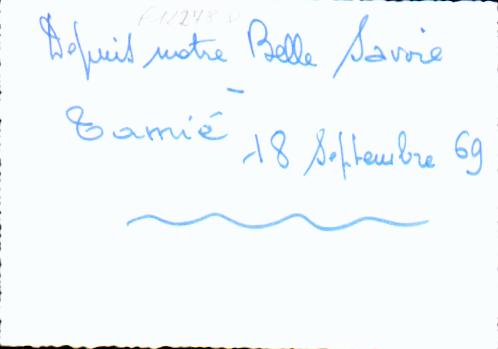 Depuis notre Belle Savoie
-
Tamié
18 Septembre 69